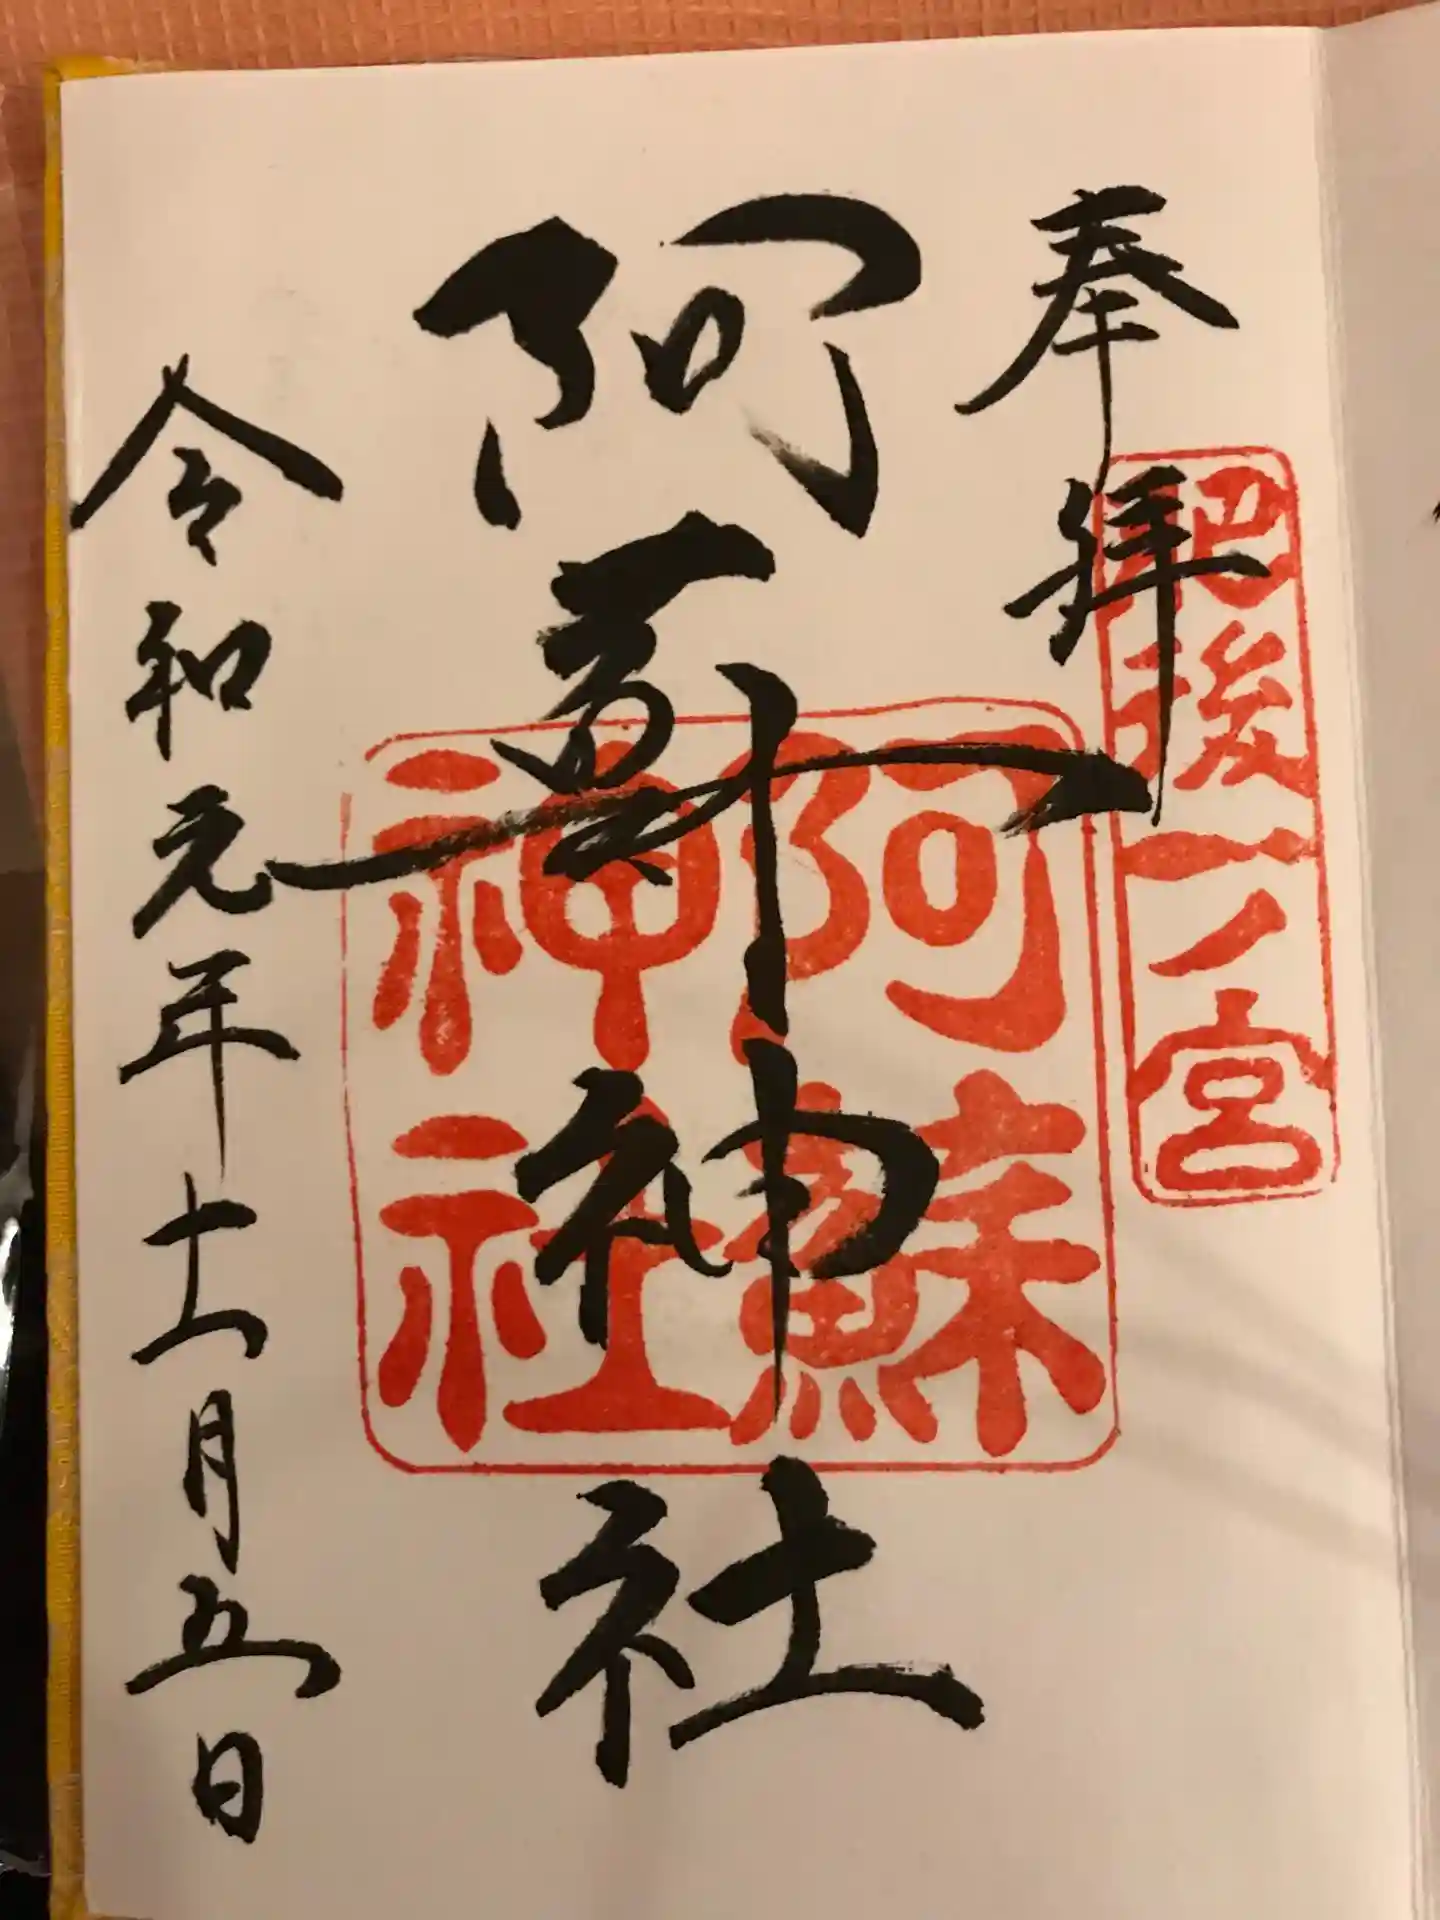 奉拝
肥後一ノ宮
阿蘇神社
阿蘇
神社
令和元年十一月五日